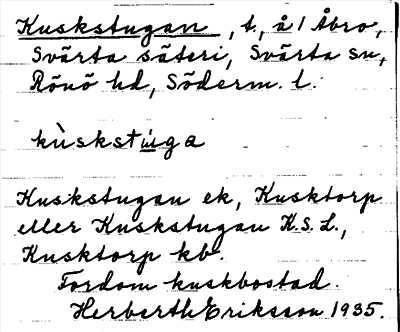 Kuskstugan, t., å 1 Åbro,
Svärta säteri, Svärta sn,
Rönö hd, Söderm. l.
kùskstùga
Kuskstugan ek, Kusktorp
eller Kuskstugan H.S.L.,
Kusktorp kb.
Fordom kuskbostad.
Herberth Eriksson 1935.